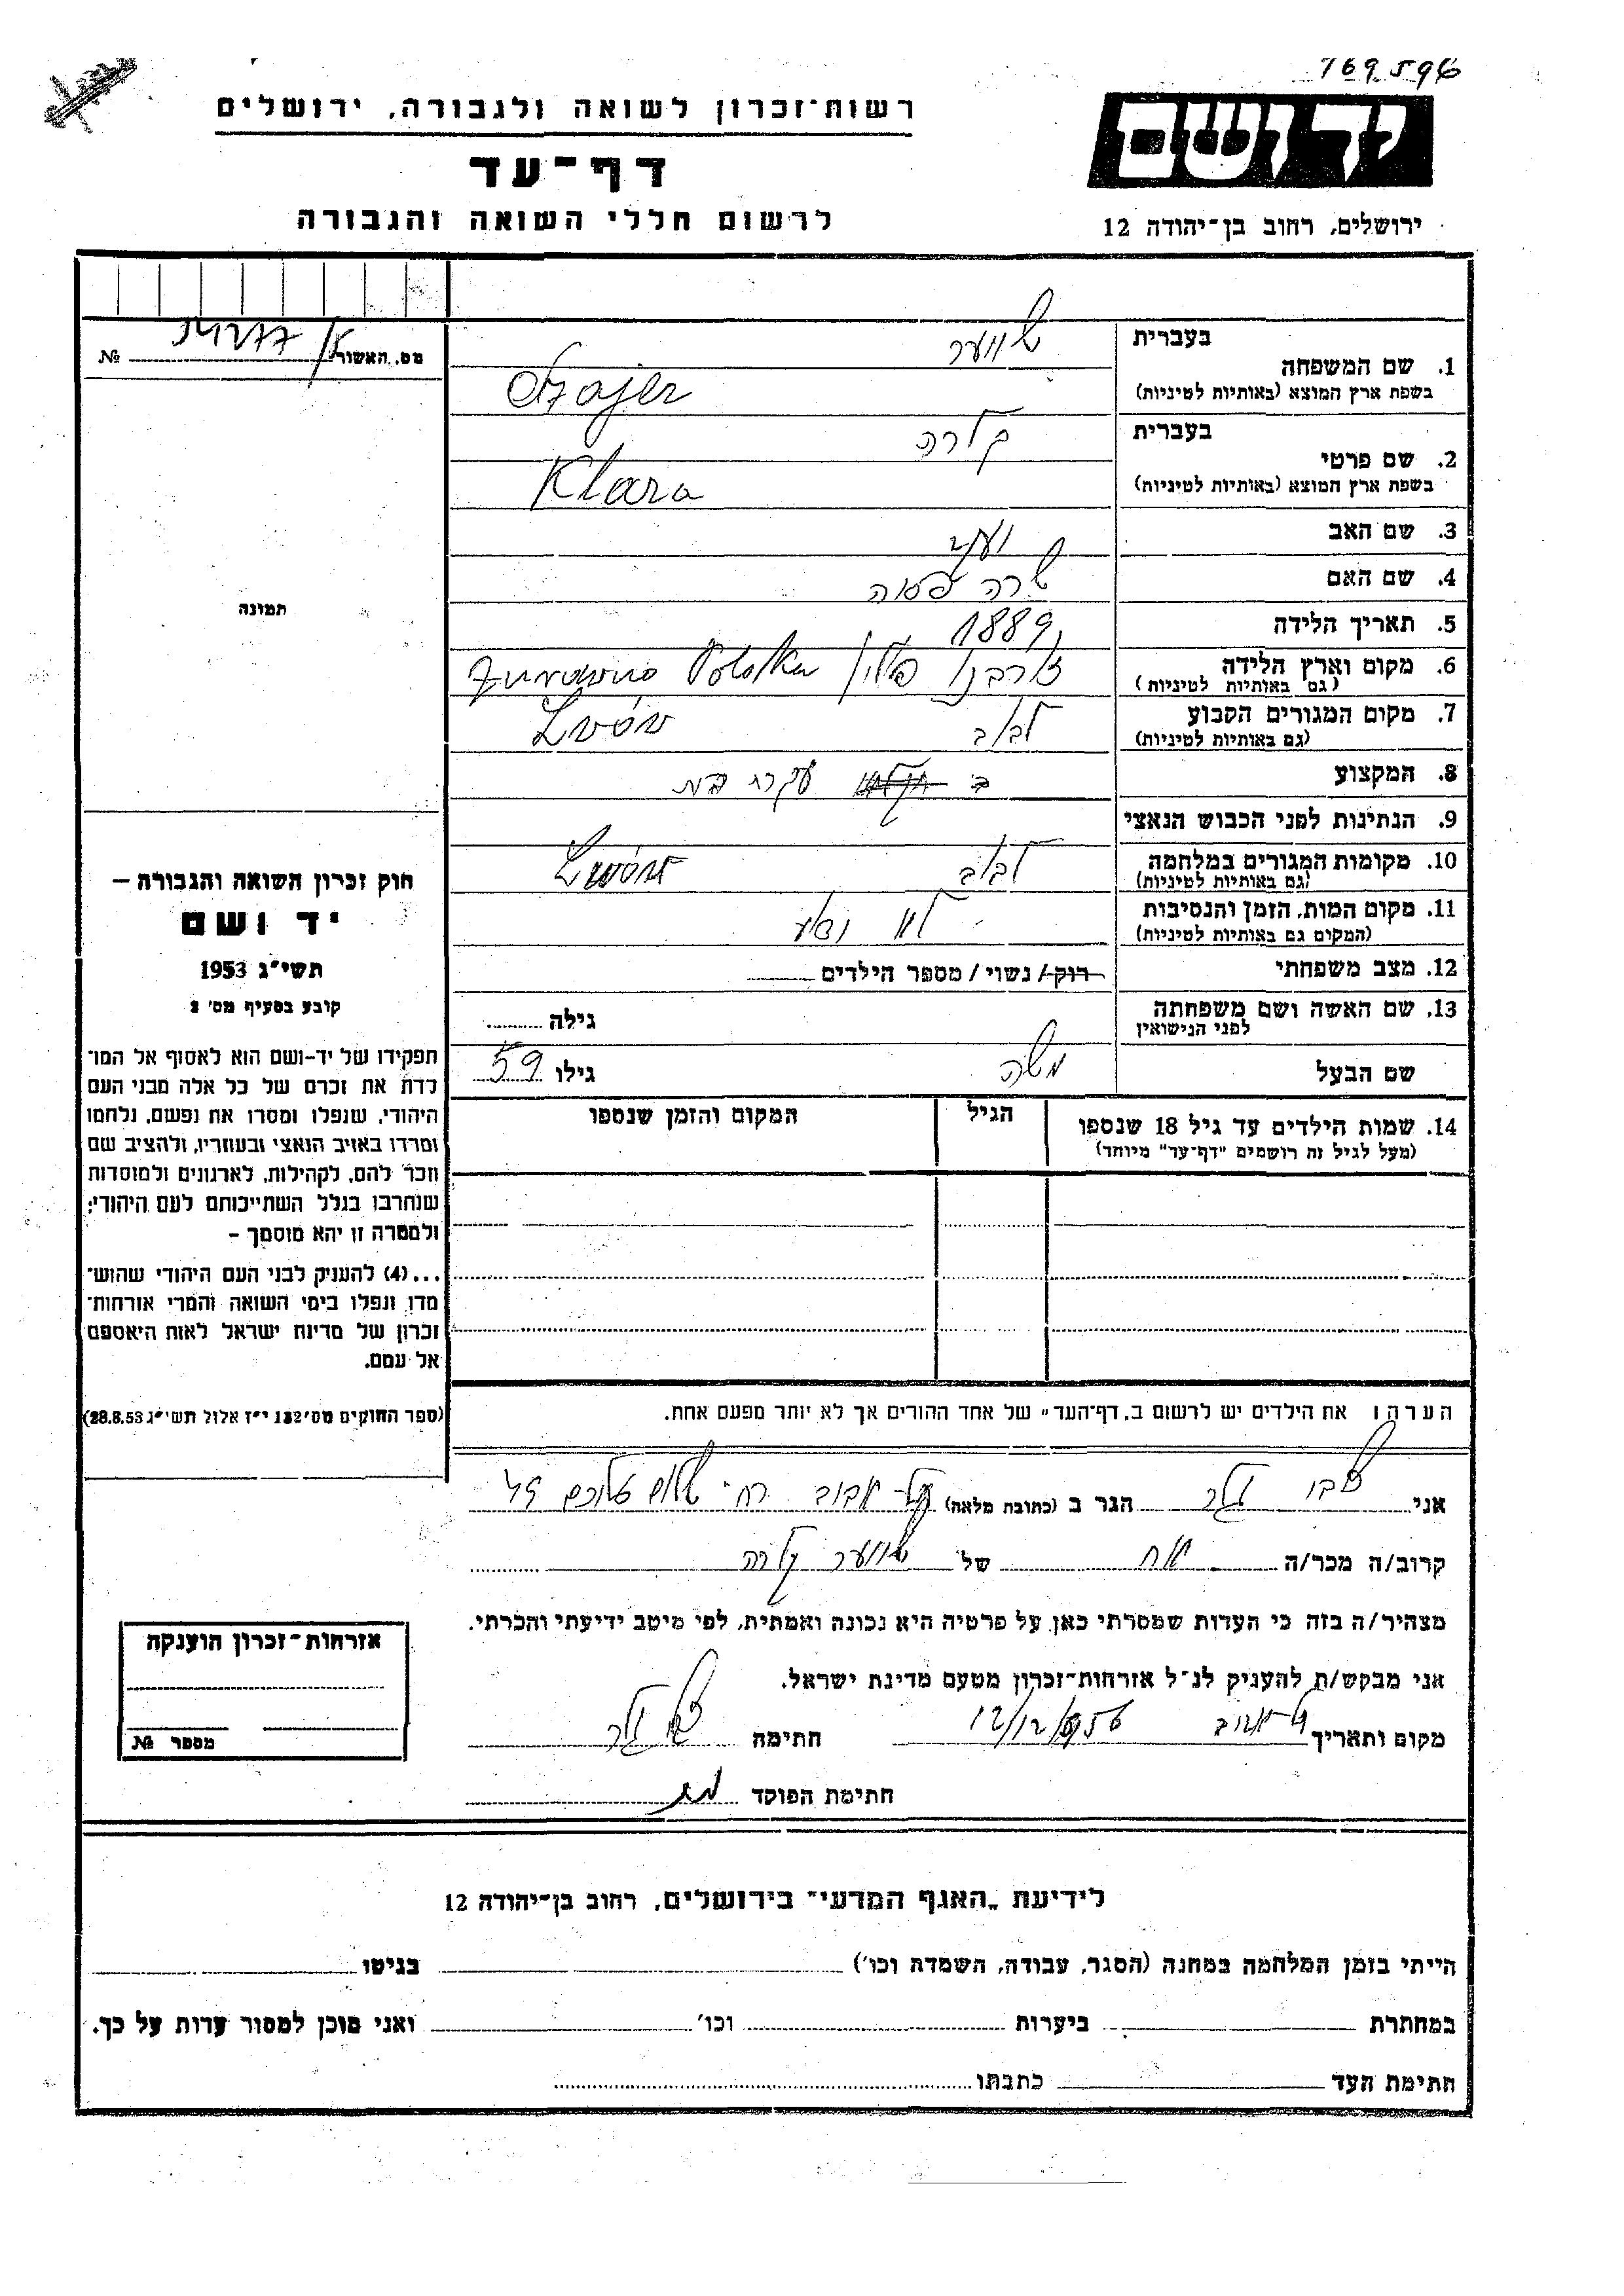 769596
רשות־זכרון לשואה ולגבורה, ירושלים
יד ושם
דף־עד
לרשום חללי השואה והגבורה
ירושלים, רחוב בן־יהודה 12
מס. האשור № 
בעברית
1. שם המשפחה
בשפת ארץ המוצא (באותיות לטיניות)
בעברית קלרה
2. שם פרטי
בשפת ארץ המוצא (באותיות לטיניות) Klara
3. שם האב
4. שם האם שרה
5. תאריך הלידה 1889
6. מקום וארץ הלידה פולין Polska
(גם באותיות לטיניות)
7. מקום המגורים הקבוע לבוב Lwów
(גם באותיות לטיניות)
8. המקצוע עקרת בית
9. הנתינות לפני הכבוש הנאצי
10. מקומות המגורים במלחמה לבוב Lwów
(גם באותיות לטיניות)
11. מקום המות, הזמן והנסיבות לא
(המקום גם באותיות לטיניות)
12. מצב משפחתי רוק/ נשוי / מספר הילדים
13. שם האשה ושם משפחתה גילה
לפני הנישואין
שם הבעל משה גילו 59
14. שמות הילדים עד גיל 18 שנספו הגיל המקום והזמן שנספו
(מעל לגיל זה רושמים "דף־עד" מיוחד)
תמונה
חוק זכרון השואה והגבורה –
יד ושם
תשי"ג 1953
קובע בסעיף מס' 2
תפקידו של יד-ושם הוא לאסוף אל המו־
לדת את זכרם של כל אלה מבני העם
היהודי, שנפלו ומסרו את נפשם, נלחמו
ומרדו באויב הנאצי ובעוזריו, ולהציב שם
וזכר להם, לקהילות, לארגונים ולמוסדות
שנחרבו בגלל השתייכותם לעם היהודי;
ולמטרה זו יהא מוסמך –
...(4) להעניק לבני העם היהודי שהוש־
מדו ונפלו בימי השואה והמרי אזרחות־
זכרון של מדינת ישראל לאות היאספם
אל עמם.
(ספר החוקים מס' 132 י"ז אלול תשי"ג 28.8.53)
הערה: את הילדים יש לרשום ב„דף־העד" של אחד ההורים אך לא יותר מפעם אחת.
אני הגר ב (כתובת מלאה) תל-אביב רח' שלום עליכם
קרוב/ה מכר/ה אח של קלרה
מצהיר/ה בזה כי העדות שמסרתי כאן על פרטיה היא נכונה ואמתית, לפי מיטב ידיעתי והכרתי.
אני מבקש/ת להעניק לנ"ל אזרחות־זכרון מטעם מדינת ישראל.
מקום ותאריך תל-אביב חתימה
חתימת הפוקד
אזרחות־זכרון הוענקה
מספר №
לידיעת „האגף המדעי" בירושלים, רחוב בן־יהודה 12
הייתי בזמן המלחמה במחנה (הסגר, עבודה, השמדה וכו') בגיטו
במחתרת ביערות וכו' ואני מוכן למסור עדות על כך.
חתימת העד כתבתו